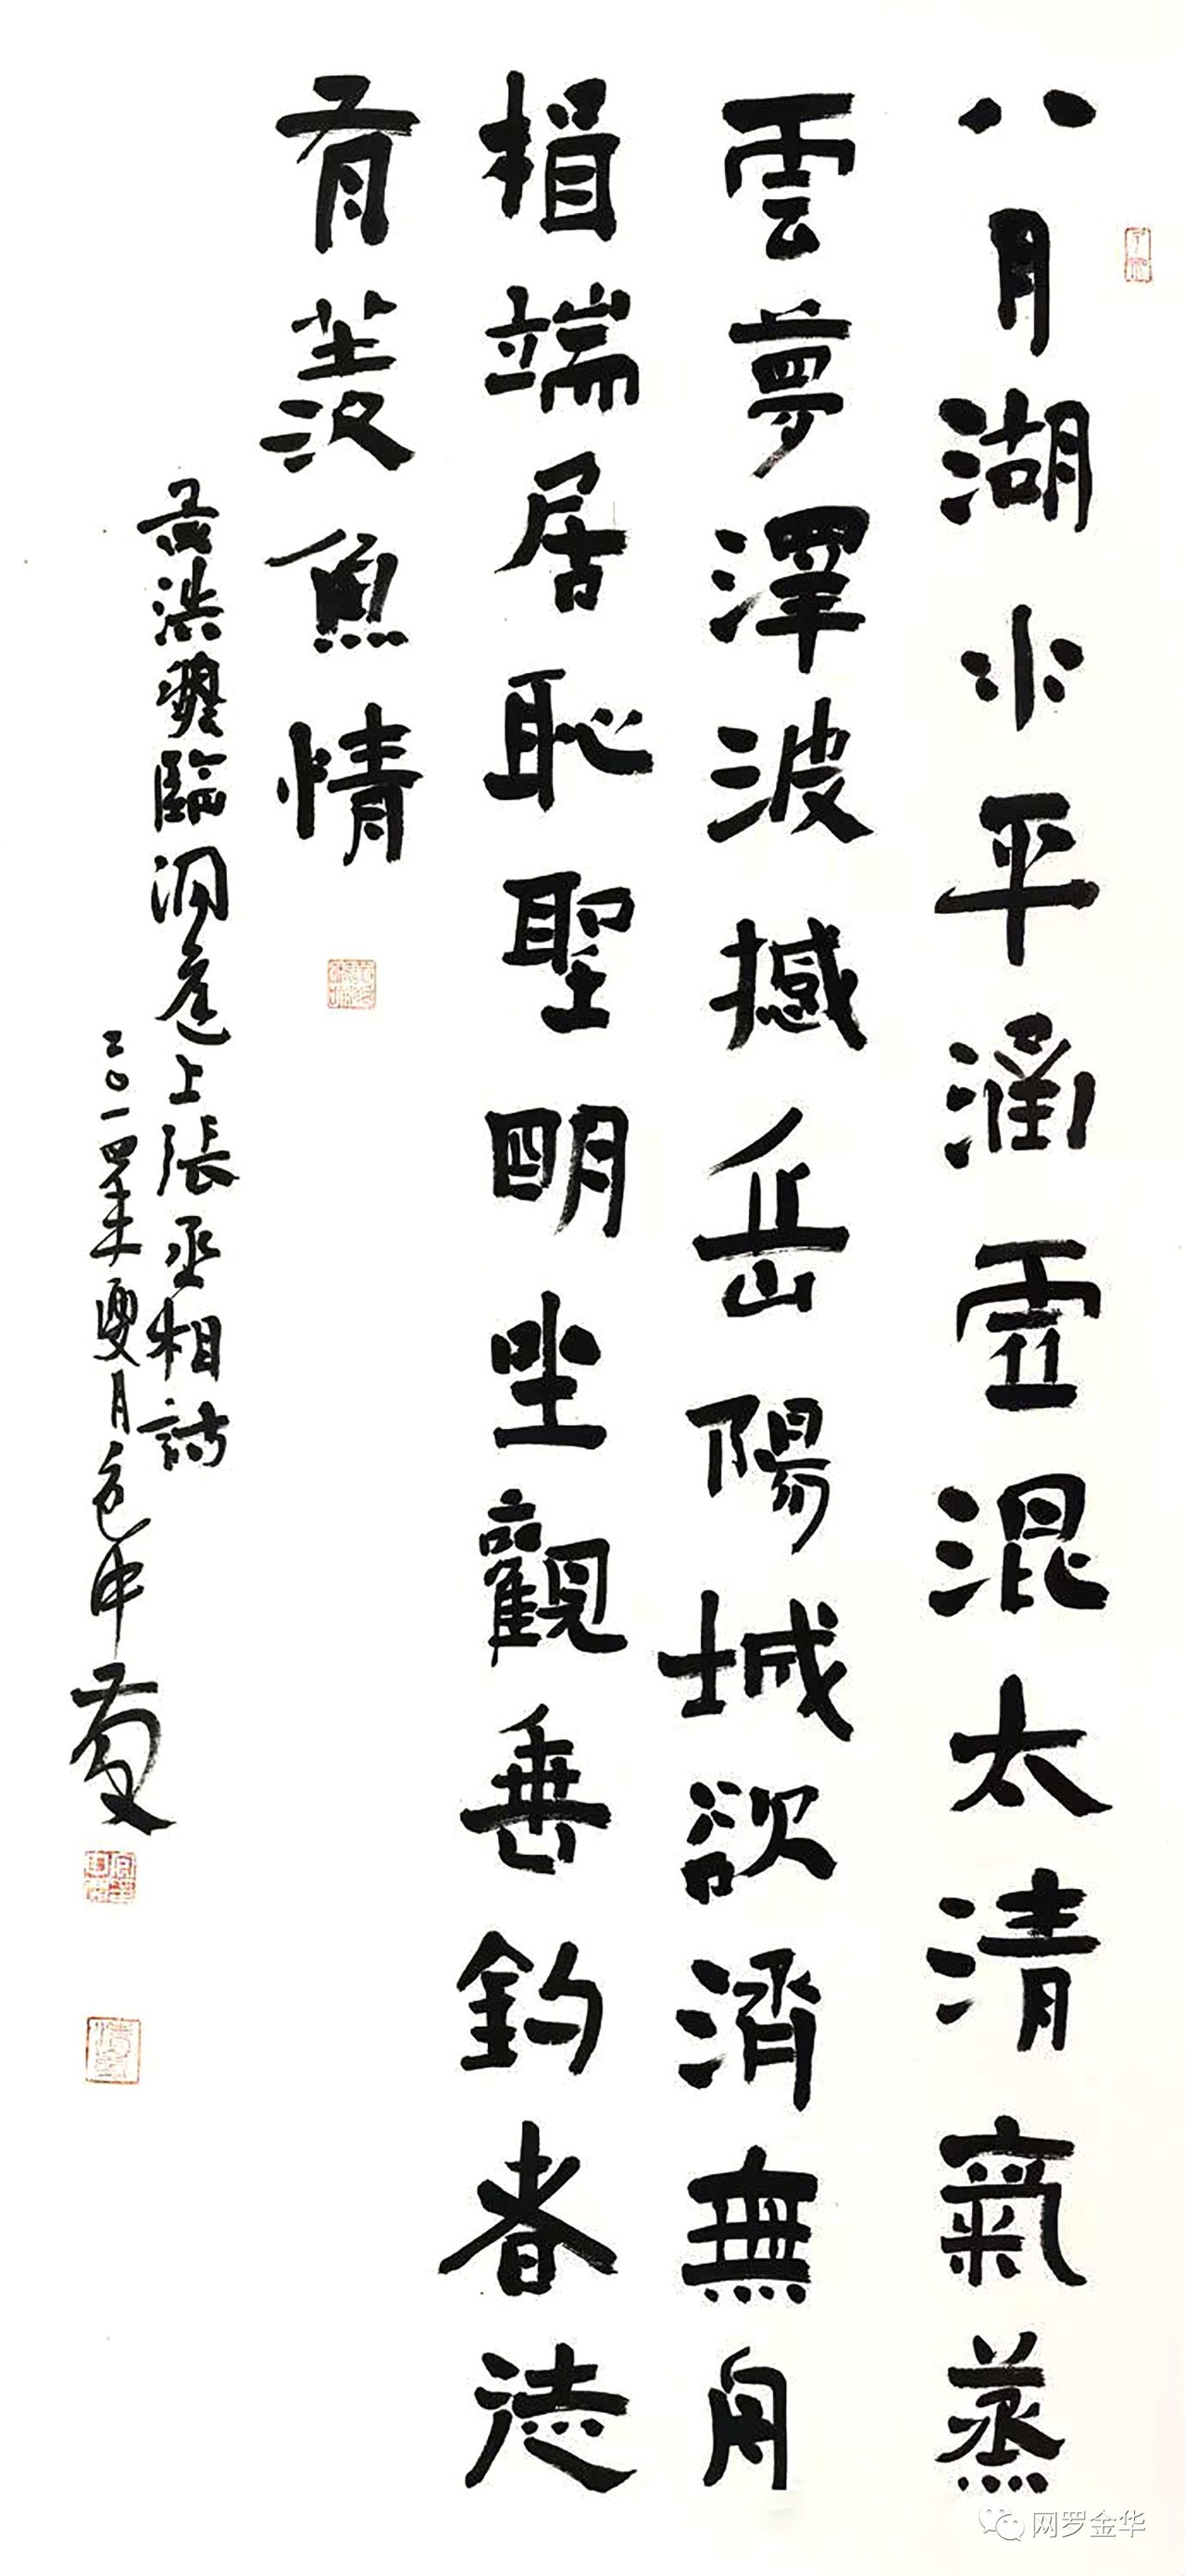 八月湖水平涵虛混太清氣蒸
雲夢澤波撼岳陽城欲濟無舟
楫端居恥聖明坐觀垂釣者徒
有羨魚情
臨洞庭上張丞相詩
二〇一四年夏月
网罗金华